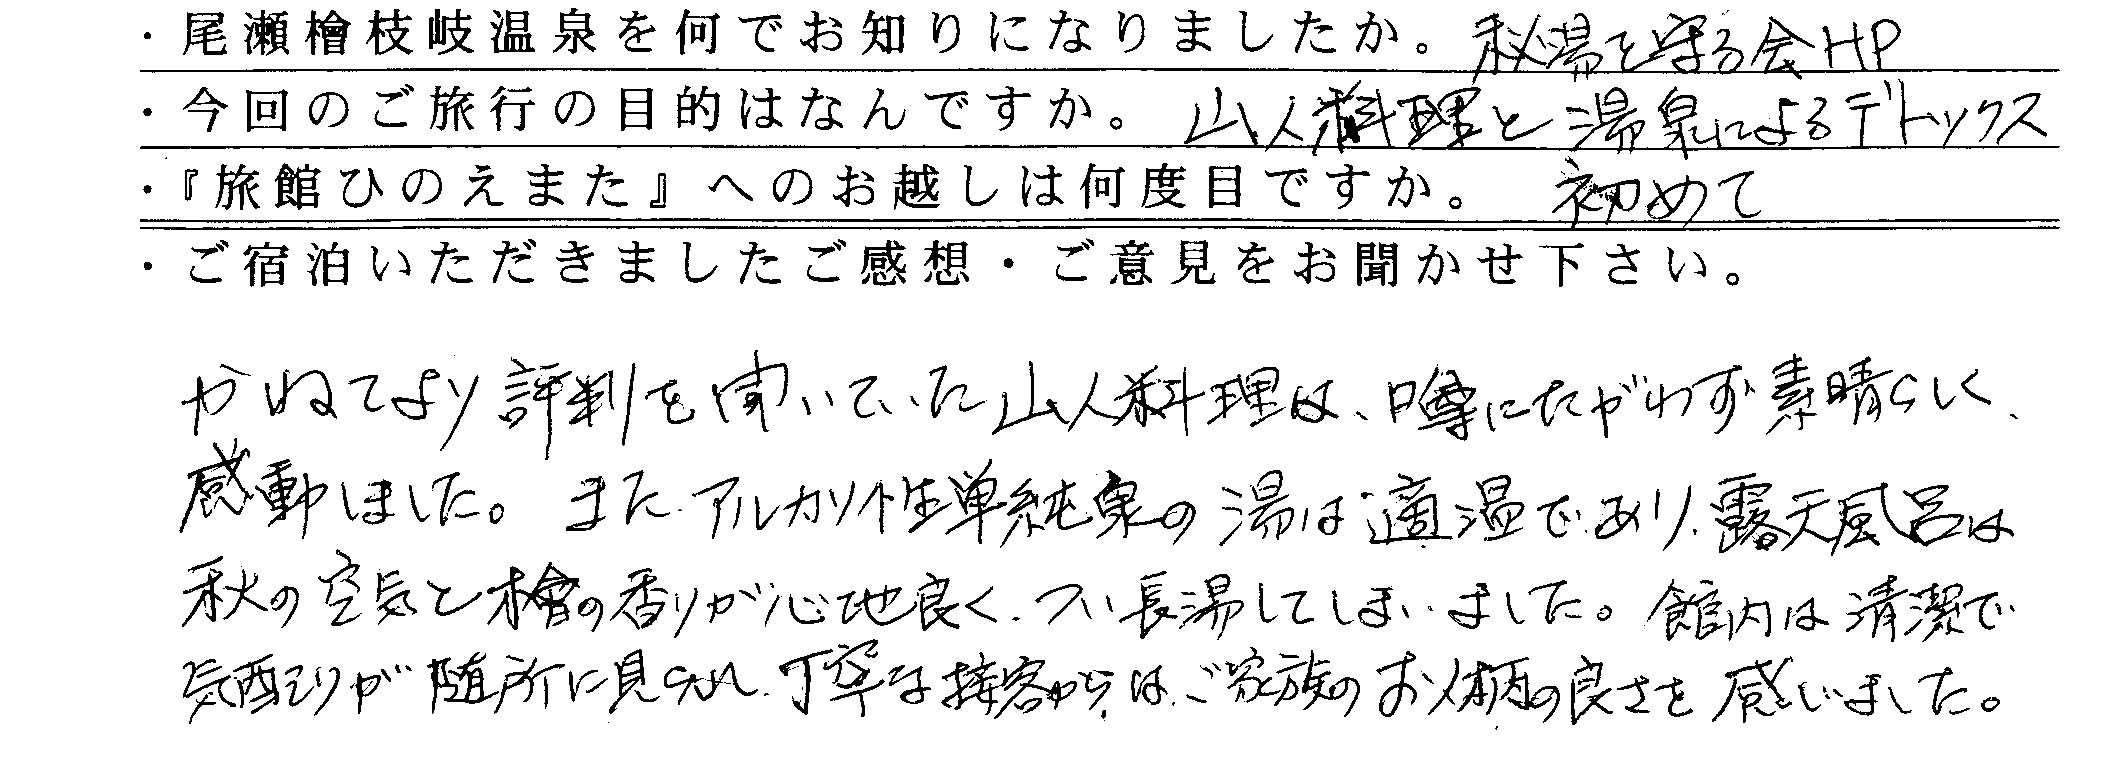 ・尾瀬檜枝岐温泉を何でお知りになりましたか。秘湯を守る会HP
・今回のご旅行の目的はなんですか。山人料理と温泉によるデトックス
・『旅館ひのえまた』へのお越しは何度目ですか。初めて
・ご宿泊いただきましたご感想・ご意見をお聞かせ下さい。
かねてより評判を聞いていた山人料理は、噂にたがわず素晴らしく、
感動しました。また、アルカリ性単純泉の湯は適温であり、露天風呂は
秋の空気と檜の香りが心地良く、つい長湯してしまいました。館内は清潔で
気配りが随所に見られ、丁寧な接客からは、ご家族のお人柄の良さを感じました。